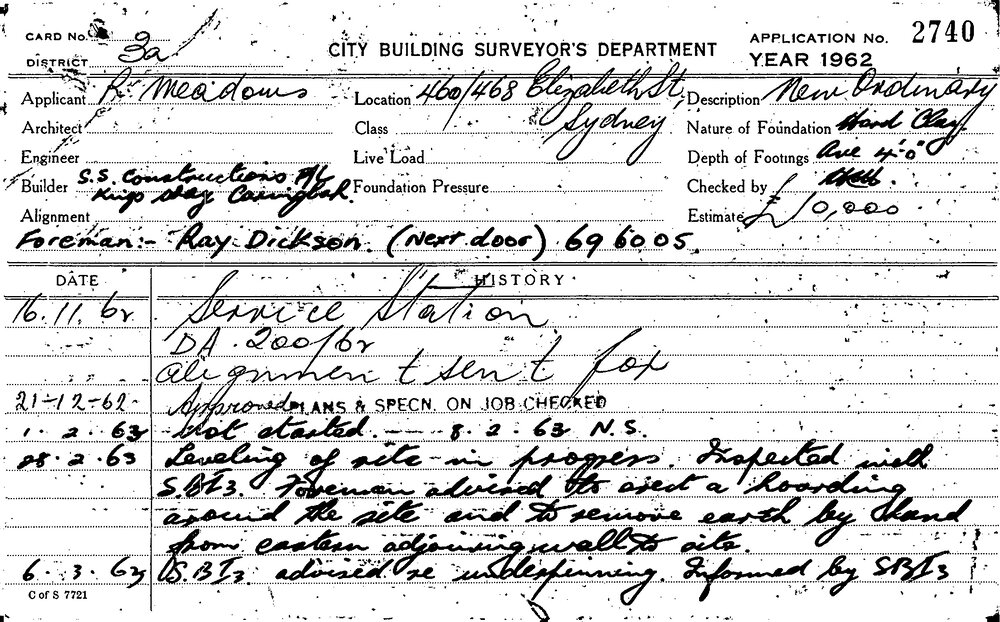 CARD No.
DISTRICT 3a
CITY BUILDING SURVEYOR'S DEPARTMENT
APPLICATION No. 2740
YEAR 1962
Applicant R. Meadows
Location 460/468 Elizabeth St,
Sydney
Description New Ordinary
Architect
Class
Nature of Foundation Hard Clay.
Engineer
Live Load
Depth of Footings Ave 4'-0"
Builder S.S. Constructions P/L
Kings Way, Caringbah.
Foundation Pressure
Checked by
Alignment
Estimate £10,000
Foreman:- Ray Dickson. (Next door) 696005.
DATE HISTORY
16.11.62 Service Station
DA. 200/62
alignment sent for
21-12-62 Approved PLANS & SPECN. ON JOB CHECKED
1.2.63 Not started. — 8.2.63 N.S.
28.2.63 Leveling of site in progress. Inspected with
S.BI3. Foreman advised to erect a hoarding
around the site and to remove earth by hand
from eastern adjoining wall to site.
6.3.63 S.BI3 advised re underpinning. Informed by SBI3
C of S 7721